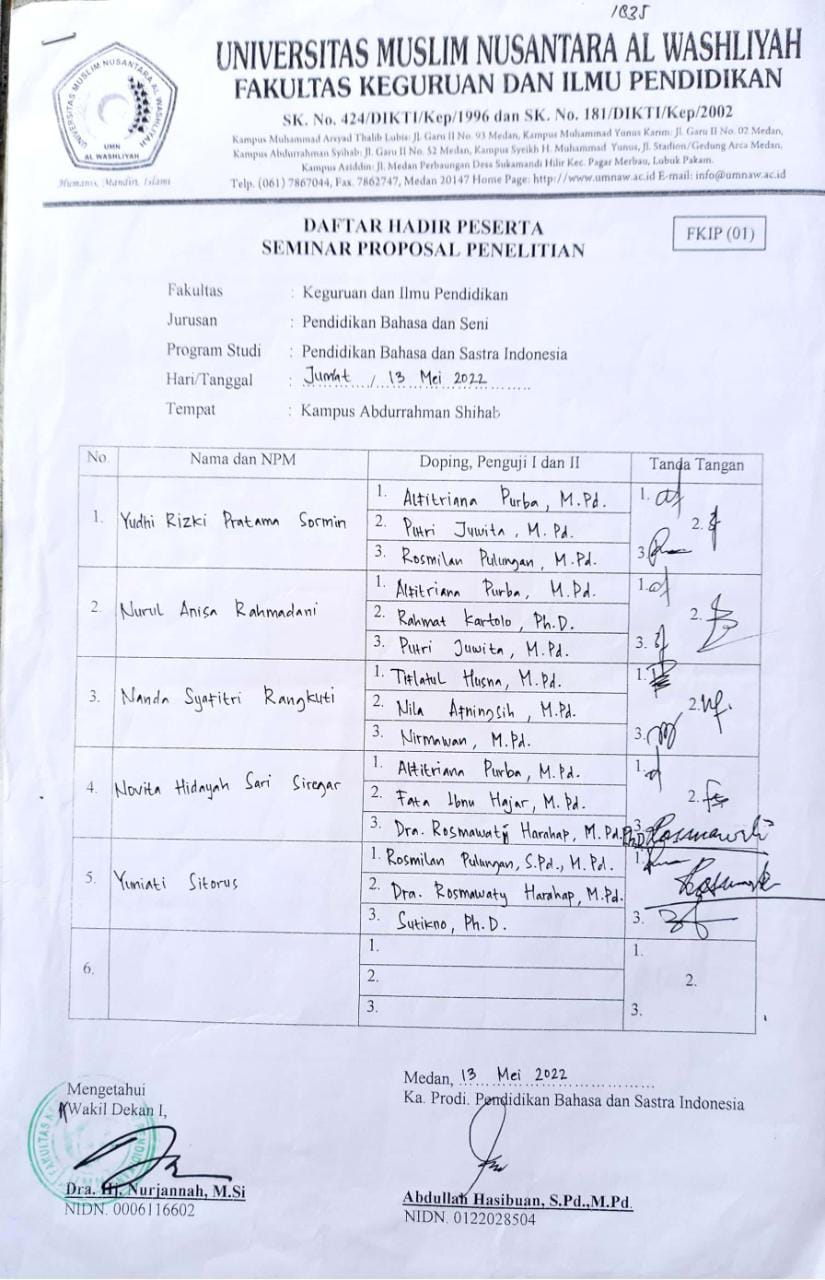 1835
UNIVERSITAS MUSLIM NUSANTARA AL WASHLIYAH
FAKULTAS KEGURUAN DAN ILMU PENDIDIKAN
SK. No. 424/DIKTI/Kep/1996 dan SK. No. 181/DIKTI/Kep/2002
Kampus Muhammad Arsyad Thalib Lubis: Jl. Garu II No. 93 Medan, Kampus Muhammad Yunus Karim: Jl. Garu II No. 02 Medan,
Kampus Abdurrahman Syihab: Jl. Garu II No. 52 Medan, Kampus Syeikh H. Muhammad Yunus, Jl. Stadion/Gedung Arca Medan,
Kampus Aziddin: Jl. Medan Perbaungan Desa Sukamandi Hilir Kec. Pagar Merbau, Lubuk Pakam.
Telp. (061) 7867044, Fax. 7862747, Medan 20147 Home Page: http://www.umnaw.ac.id E-mail: info@umnaw.ac.id
UNIVERSITAS MUSLIM NUSANTARA AL WASHLIYAH
UMN
AL WASHLIYAH
Humanis, Mandiri, Islami
DAFTAR HADIR PESERTA
SEMINAR PROPOSAL PENELITIAN
FKIP (01)
Fakultas : Keguruan dan Ilmu Pendidikan
Jurusan : Pendidikan Bahasa dan Seni
Program Studi : Pendidikan Bahasa dan Sastra Indonesia
Hari/Tanggal : Jumat / 13 Mei 2022
Tempat : Kampus Abdurrahman Shihab
No. Nama dan NPM Doping, Penguji I dan II Tanda Tangan
1. Yudhi Rizki Pratama Sormin
1. Alfitriana Purba, M.Pd. 1.
2. Putri Juwita, M.Pd. 2.
3. Rosmilan Pulungan, M.Pd. 3.
2. Nurul Anisa Rahmadani
1. Alfitriana Purba, M.Pd. 1.
2. Rahmat Kartolo, Ph.D. 2.
3. Putri Juwita, M.Pd. 3.
3. Nanda Syafitri Rangkuti
1. Tiflatul Husna, M.Pd. 1.
2. Nila Afningsih, M.Pd. 2.
3. Nirmawan, M.Pd. 3.
4. Novita Hidayah Sari Siregar
1. Alfitriana Purba, M.Pd. 1.
2. Fata Ibnu Hajar, M.Pd. 2.
3. Dra. Rosmawati Harahap, M.Pd. Ph.D 3.
5. Yuniati Sitorus
1. Rosmilan Pulungan, S.Pd., M.Pd. 1.
2. Dra. Rosmawaty Harahap, M.Pd.
3. Sutikno, Ph.D. 3.
6.
1. 1.
2. 2.
3. 3.
Mengetahui
Wakil Dekan I,
Dra. Hj. Nurjannah, M.Si
NIDN. 0006116602
Medan, 13 Mei 2022
Ka. Prodi. Pendidikan Bahasa dan Sastra Indonesia
Abdullah Hasibuan, S.Pd.,M.Pd.
NIDN. 0122028504